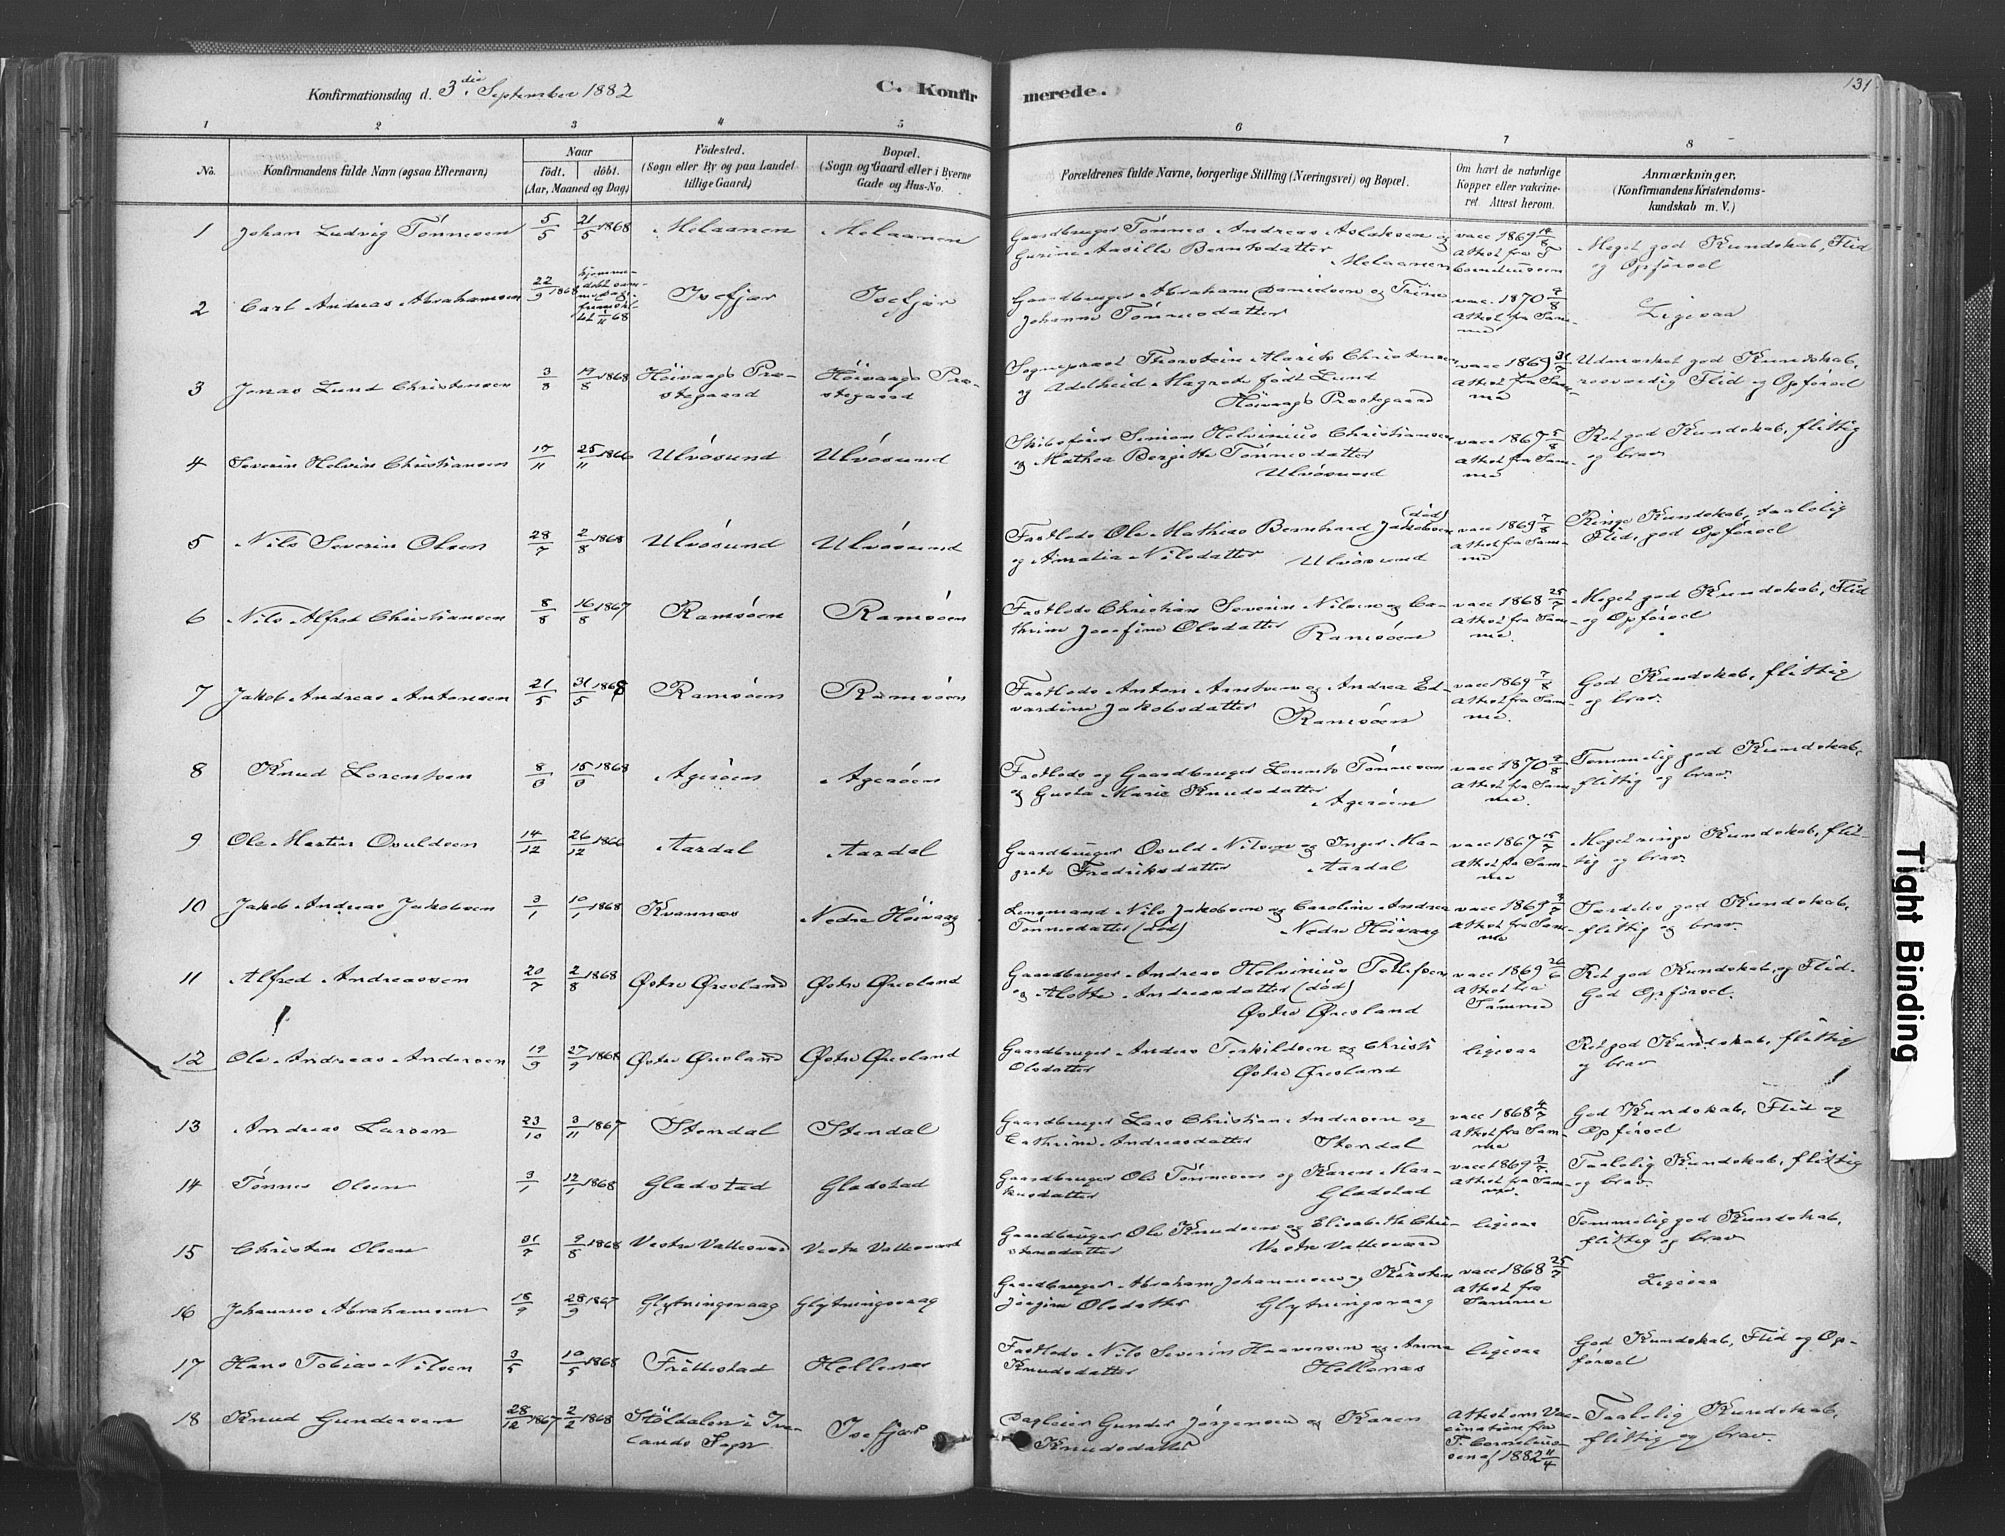 Konfirmationsdag d. 3die September 1882
C. Konfir merede.
131
1 2 3 4 5 6 7 8
No. Konfirmandens fulde Navn (ogsaa Efternavn) Naar født. døbt. (Aar, Maaned og Dag) Fødested. (Sogn eller By og paa Landet tillige Gaard) Bopæl. (Sogn og Gaard eller i Byerne Gade og Hus-No. Forældrenes fulde Navne, borgerlige Stilling (Næringsvei) og Bopæl. Om havt de naturlige Kopper eller vakcineret Attest herom. Anmærkninger. (Konfirmandens Kristendomskundskab m. V.)
1 Johan Ludvig Tønnesen 5/5 21/5 1868 Melaanen Melaanen Gaardbruger Tønnes Andreas Aslaksen og vacc 1869 14/8 Meget god Kundskab, Flid
Gurine Berntsdatter Melaanen Attest fra T Corneliussen og Opførsel
2 Carl Andreas Abrahamsen 22/9 1868 hjemmedøbt samme Dag, 1/11 68 Isefjær Isefjær Gaardbruger Abraham Danielsen og Trine vacc. 1870 Ligesaa
Johanne Tønnesdatter Attest fra Samme
3 Jonas Lund Christensen 3/8 19/8 1868 Høivaags Præstegaard Høivaags Præstegaard Sogneprest Thorstein Marits Christensen vacc 1869 31/7 Udmærket god Kundskab,
og Adelheid Magrete født Lund Attest fra Samme rosværdig Flid og Opførsel
Høivaags Præstegaard
4 Severin Helvin Christiansen 17/11 25/11 1866 Ulvøsund Ulvøsund Skibsfører Simon Helvinius Christiansen vacc 1867 5/8 Ret god Kundskab, flittig
og Mathea Bergitte Tønnesdatter Attest fra Samme og brav
Ulvøsund
5 Nils Severin Olsen 28/7 2/8 1868 Ulvøsund Ulvøsund Fastlods Ole Mathias Bernhard Jakobsen (død) vacc 1869 7/8 Ringe Kundskab, taalelig
og Amalia Nilsdatter Ulvøsund Attest fra Samme Flid, god Opførsel
6 Nils Alfred Christiansen 8/8 16/8 1867 Ramsøen Ramsøen Fastlods Christian Severin Nilsen og Ca- vacc 1868 25/7 Meget god Kundskab, Flid
thrine Josefine Olsdatter Ramsøen Attest fra Samme. og Opførsel
7 Jakob Andreas Antonsen 21/5 31/5 1868 Ramsøen Ramsøen Fastlods Anton Arntsen og Andrea Ed- vacc 1869 7/8 God Kundskab, flittig
vardine Jakobsdatter Ramsøen Attest fra Samme. og brav.
8 Knud Lorentsen 15 1868 Agerøen Agerøen Fastlods og Gaardbruger Lorents Tønnesen vacc 1870 Temmelig god Kundskab,
og Gusta Marie Knudsdatter Agerøen Attest fra Samme. flittig og brav
9 Ole Martin Osuldsen 14/12 26/12 1866 Aardal Aardal Gaardbruger Osuld Nilsen og Inger Ma- vacc 1867 15/7 Meget ringe Kundskab, flit-
grete Fredriksdatter Aardal Attest fra Samme tig og brav
10 Jakob Andreas Jakobsen 3/1 10/1 1868 Kvannæs Nedre Høivaag Lensmand Nils Jakobsen og Caroline Andrea vacc 1869 Særdeles god Kundskab,
Tønnesdatter (død) Nedre Høivaag Attest fra Samme flittig og brav.
11 Alfred Andreassen 20/7 2/8 1868 Østre Øresland Østre Øresland Gaardbruger Andreas Helvinius Tellefsen vacc 1869 26/6 Ret god Kundskab, og Flid.
og Alette Andreasdatter (død) Attest fra Samme God Opførsel.
Østre Øresland
12 Ole Andreas Andersen 19/9 27/9 1868 Østre Øresland Østre Øresland Gaardbruger Anders Terkildsen og Christi ligesaa Ret god Kundskab, flittig
Olsdatter Østre Øresland og brav
13 Andreas Larsen 23/10 3/11 1867 Stendal Stendal Gaardbruger Lars Christian Andersen og vacc 1868 4/7 God Kundskab, Flid og
Cathrine Andreasdatter Stendal Attest fra Samme Opførsel
14 Tønnes Olsen 3/1 12/1 1868 Gladstad Gladstad Gaardbruger Ole Tønnesen og Karen Mar- vacc 1869 3/7. Taalelig Kundskab, flittig
kusdatter Gladstad Attest fra Samme. og brav.
15 Christen Olsen 31/7 9/8 1868 Vestre Vallesværd Vestre Vallesværd Gaardbruger Ole Knudsen og Elisabeth Chri- ligesaa Temmelig god Kundskab,
stensdatter Vestre Vallesværd flittig og brav
16 Johannes Abrahamsen 18/9 28/9 1867 Glytningsvaag Glytningsvaag Gaardbruger Abraham Johannesen og Kirsten vacc 1868 25/7 Ligesaa
Jørgine Olsdatter Glytningsvaag Attest fra Samme
17 Hans Tobias Nilsen 3/5 10/5 1868 Frittestad Hellenæs Fastlods Nils Severin Haaversen og Anna ligesaa God Kundskab, Flid og Op-
Knudsdatter Hellenæs førsel
18 Knud Gundersen 28/12 1867 2/2 1868 Støldalen i Ivelands Sogn Isefjær Dagleier Gunder Jørgensen og Karen Attest om Vaccination fra Taalelig Kundskab,
Knudsdatter T. Corneliussen af 1882 11/4 flittig og brav.
Tight Binding